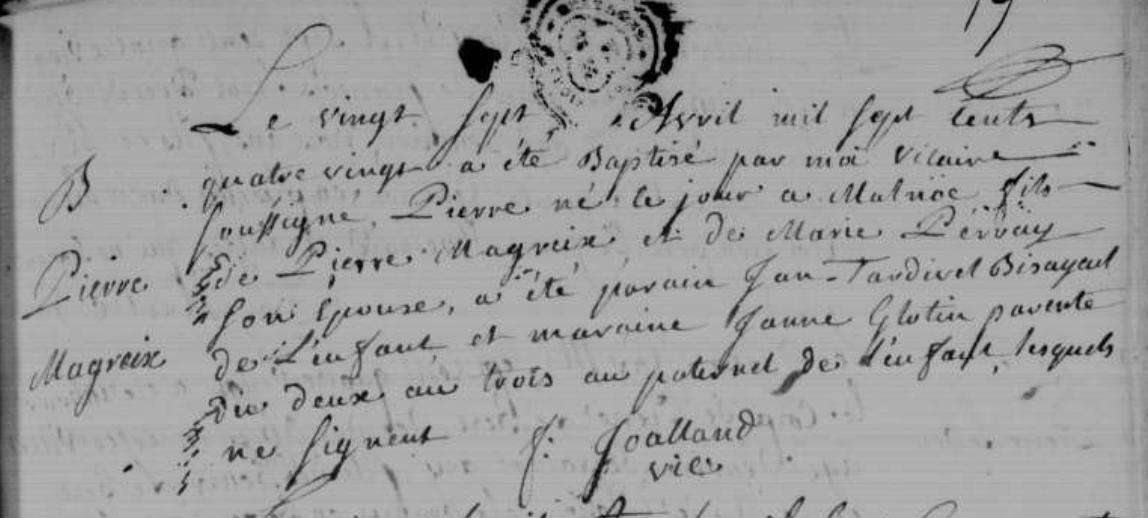 19
Le vingt sept Avril mil sept cents
B
quatre vingt a été Baptisé par moi vicaire
soussigne Pierre né le jour a Malnöe fils
Pierre
de Pierre Magreix et de Marie Pérvay
son Epouse, a été parain Jan-Tardivel Bisayeul
Magreix
de L'enfant et maraine Janne Glotin parente
du deux au trois au paternel de l'enfant, lesquels
ne signent J. Joalland
vic